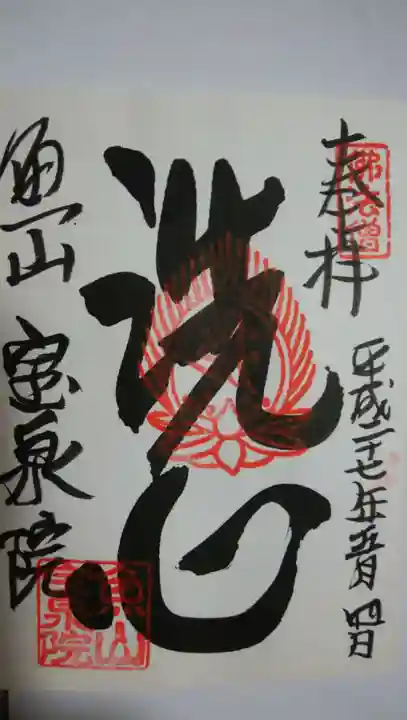 奉拝
佛法僧
平成二十七年五月四日
洗心
魚山 宝泉院
魚山
宝泉院